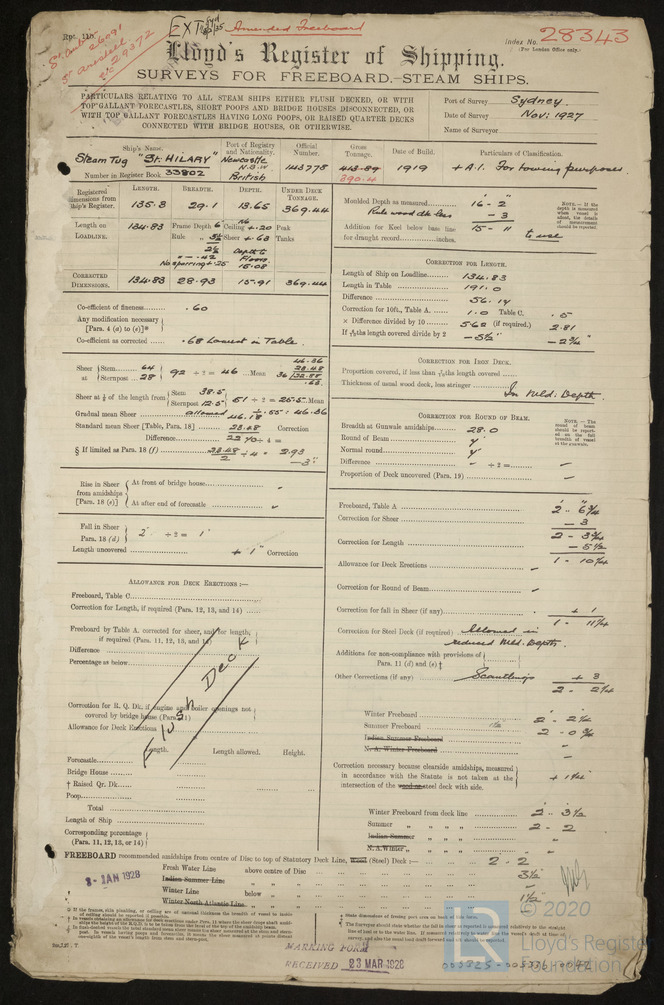 Rpt. 11b.
EXT
Amended Freeboard
Index No. 28343
(For London Office only.)
29372
Lloyd's Register of Shipping.
SURVEYS FOR FREEBOARD.—STEAM SHIPS.
PARTICULARS RELATING TO ALL STEAM SHIPS EITHER FLUSH DECKED, OR WITH
TOP GALLANT FORECASTLES, SHORT POOPS AND BRIDGE HOUSES DISCONNECTED, OR
WITH TOP GALLANT FORECASTLES HAVING LONG POOPS, OR RAISED QUARTER DECKS
CONNECTED WITH BRIDGE HOUSES, OR OTHERWISE.
Port of Survey Sydney.
Date of Survey Nov: 1927
Name of Surveyor
Ship's Name. Port of Registry and Nationality. Official Number. Gross Tonnage. Date of Build. Particulars of Classification.
Steam Tug "St. HILARY" Newcastle N.S.W British 143778 413.89 390.4 1919 +A.1. For towing purposes.
Number in Register Book 33802
Registered dimensions from Ship's Register. LENGTH. BREADTH. DEPTH. UNDER DECK TONNAGE.
135.3 29.1 13.65 369.44
Length on LOADLINE. 134.83 Frame Depth 6" No Ceiling +.20 Peak
Rule " 3½ Sheer +.63 Tanks
2½
= .42 Depth to Floors
No sparring +.25 15.08
CORRECTED DIMENSIONS. 134.83 28.93 15.91 369.44
Co-efficient of fineness .60
Any modification necessary [Para. 4 (a) to (e)]*
Co-efficient as corrected .68 Lowest in Table.
Sheer at Stem 64 Sternpost 28 92 ÷ 2 = 46 Mean
46.36
23.48
36 22.88
.63
Sheer at ⅛ of the length from Stem 38.5 Sternpost 12.5 51 ÷ 2 = 25.5 Mean
Gradual mean Sheer allowed 46.18 ÷ .55 : 46.36
Standard mean Sheer [Table, Para. 18] 23.48 Correction
Difference 22.70 ÷ 4 =
§ If limited as Para. 18 (f) 23.48 / 2 ÷ 4 = 2.93
– 3"
Rise in Sheer from amidships [Para. 18 (e)] At front of bridge house
At after end of forecastle
Fall in Sheer Para. 18 (d) 2" ÷ 2 = 1"
Length uncovered + 1" Correction
ALLOWANCE FOR DECK ERECTIONS :—
Freeboard, Table C
Correction for Length, if required (Para. 12, 13, and 14)
Freeboard by Table A. corrected for sheer, and for length, if required (Para. 11, 12, 13, and 14)
Difference
Percentage as below
Flush Deck
Correction for R. Q. Dk. if engine and boiler openings not covered by bridge house (Para. 11)
Allowance for Deck Erections
Length. Length allowed. Height.
Forecastle
Bridge House
† Raised Qr. Dk.
Poop
Total
Length of Ship
Corresponding percentage (Para. 11, 12, 13, or 14)
Moulded Depth as measured 16 – 2
Rule wood dk less – 3
15 – 11
Addition for Keel below base line for draught record inches. to use
NOTE.—If the depth is measured when vessel is afloat, the details of measurement should be reported.
CORRECTION FOR LENGTH.
Length of Ship on Loadline 134.83
Length in Table 191.0
Difference 56.17
Correction for 10ft., Table A. 1.0 Table C. .5
× Difference divided by 10 5.62 (if required.) 2.81
If 6/10ths length covered divide by 2 – 5½" – 2¾"
CORRECTION FOR IRON DECK.
Proportion covered, if less than 7/10ths length covered
Thickness of usual wood deck, less stringer In Mld: Depth.
CORRECTION FOR ROUND OF BEAM.
Breadth at Gunwale amidships 28.0
Round of Beam 7"
Normal round 7"
Difference – ÷ 2 = –
Proportion of Deck uncovered (Para. 19) –
NOTE.—The round of beam should be reported on the full breadth of vessel at the gunwale.
Freeboard, Table A 2 – 6¾
Correction for Sheer – 3
2 – 3¾
Correction for Length – 5½
1 – 10¼
Allowance for Deck Erections –
Correction for Round of Beam –
Correction for fall in Sheer (if any) + 1
1 – 11¼
Correction for Steel Deck (if required) Allowed in reduced Mld. Depth. –
Additions for non-compliance with provisions of Para. 11 (d) and (e) †
Other Corrections (if any) Scantlings + 3
2 – 2¼
Winter Freeboard 2 – 2¼
Summer Freeboard 2 – 0¾
Indian Summer Freeboard
N. A. Winter Freeboard
Correction necessary because clearside amidships, measured in accordance with the Statute is not taken at the intersection of the wood or steel deck with side. + 1¼
Winter Freeboard from deck line 2 – 3½
Summer " " " " 2 – 2
Indian Summer " " " "
N. A. Winter " " " "
FREEBOARD recommended amidships from centre of Disc to top of Statutory Deck Line, Wood (Steel) Deck :— 2 – 2
Fresh Water Line above centre of Disc 3½
Indian Summer Line " " –
Winter Line below " 1½
Winter North Atlantic Line " " –
3-JAN 1928
MARKING FORM
RECEIVED 23 MAR 1928
© 2020
LR
Lloyd's Register
Foundation
003325-003336-0042